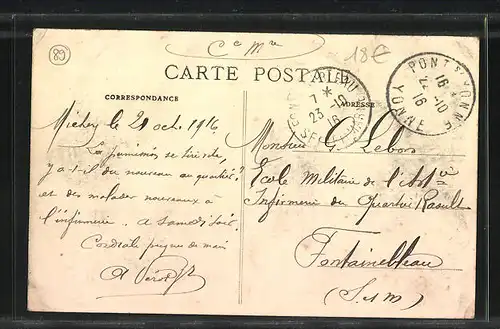 89
Cce Mre
18€
CARTE POSTALE
CORRESPONDANCE
ADRESSE
PONT S YONNE
YONNE
22-10
16
7 *
23-10
16
Michery le 21 oct. 1916
La permission se tire vite,
y a-t-il du nouveau au quartier?
et des malades nouveaux à
l'infirmerie. a samedi soir
Cordiale poignée de main
Monsieur G. Lebors
Ecole Militaire de l'Art
Infirmerie du Quartier Raoult
Fontainebleau
(S. et M)